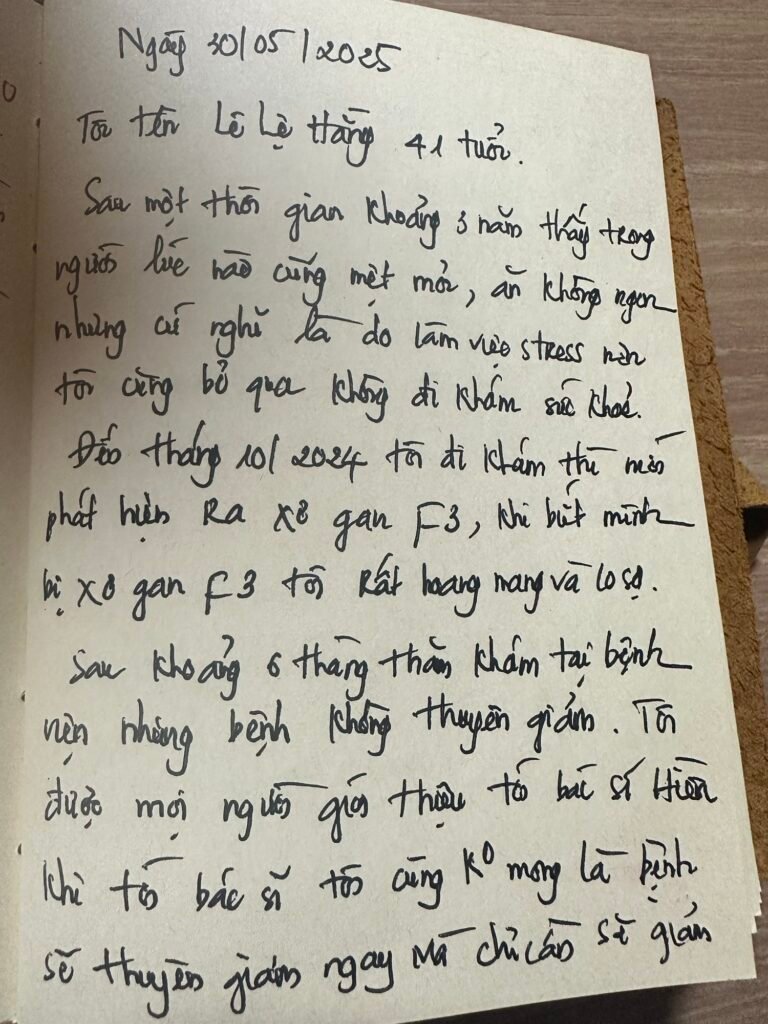 Ngày 30/05/2025
Tôi tên Lê Lệ Hằng 41 tuổi.
Sau một thời gian khoảng 3 năm thấy trong
người lúc nào cũng mệt mỏi, ăn không ngon
nhưng cứ nghĩ là do làm việc stress nên
tôi cũng bỏ qua không đi khám sức khoẻ.
Đến tháng 10/2024 tôi đi khám thì mới
phát hiện Ra xơ gan F3, khi biết mình
bị xơ gan F3 tôi Rất hoang mang và lo sợ.
Sau khoảng 6 tháng thăm khám tại bệnh
viện nhưng bệnh không thuyên giảm. Tôi
được mọi người giới thiệu tới bác sĩ Hiền
khi tới bác sĩ tôi cũng K⁰ mong là bệnh
sẽ thuyên giảm ngay mà chỉ cần sẽ giảm